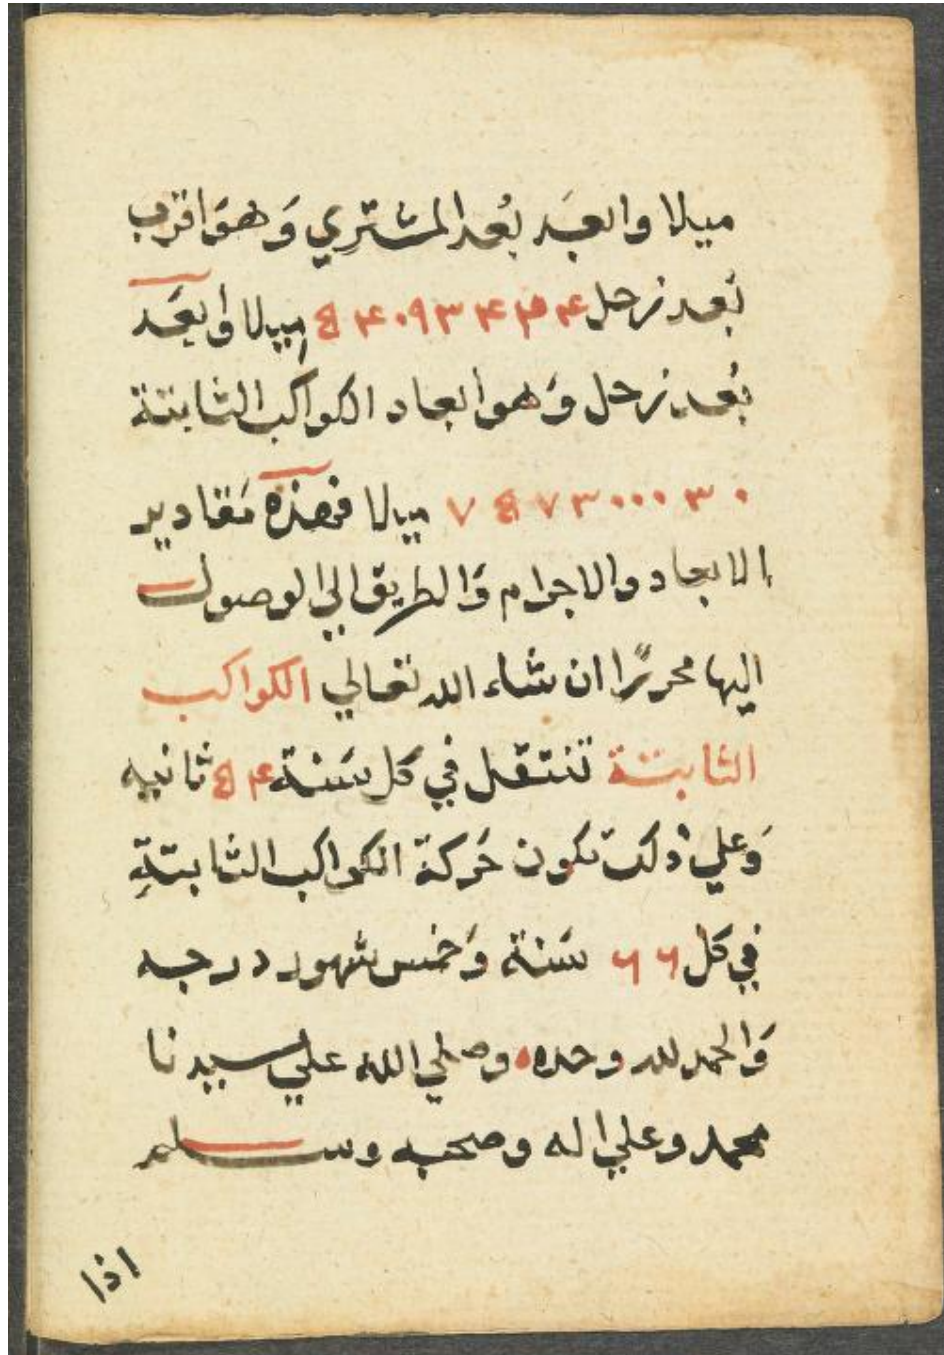 ميلا وابعَد بُعد المشتري وَهوَ اقرب
بُعد زحل ميلا وابعَد
بُعد زحل وَهو ابعاد الكواكب الثابتة
ميلا فهذه مَقادير
الابعاد والاجرام وَالطريق الي الوصول
اليها محررًا ان شاء الله تعالي الكواكب
الثابتة تنتقل في كل سَنة ثانيه
وَعلي ذلك تكون حَركة الكواكب الثابتةِ
في كل ٦٦ سَنة وَخمس شهور درجه
وَالحمد لله وحده وصلي الله علي سيدنا
محمد وعلي اله وصحبه وسلم
اذا